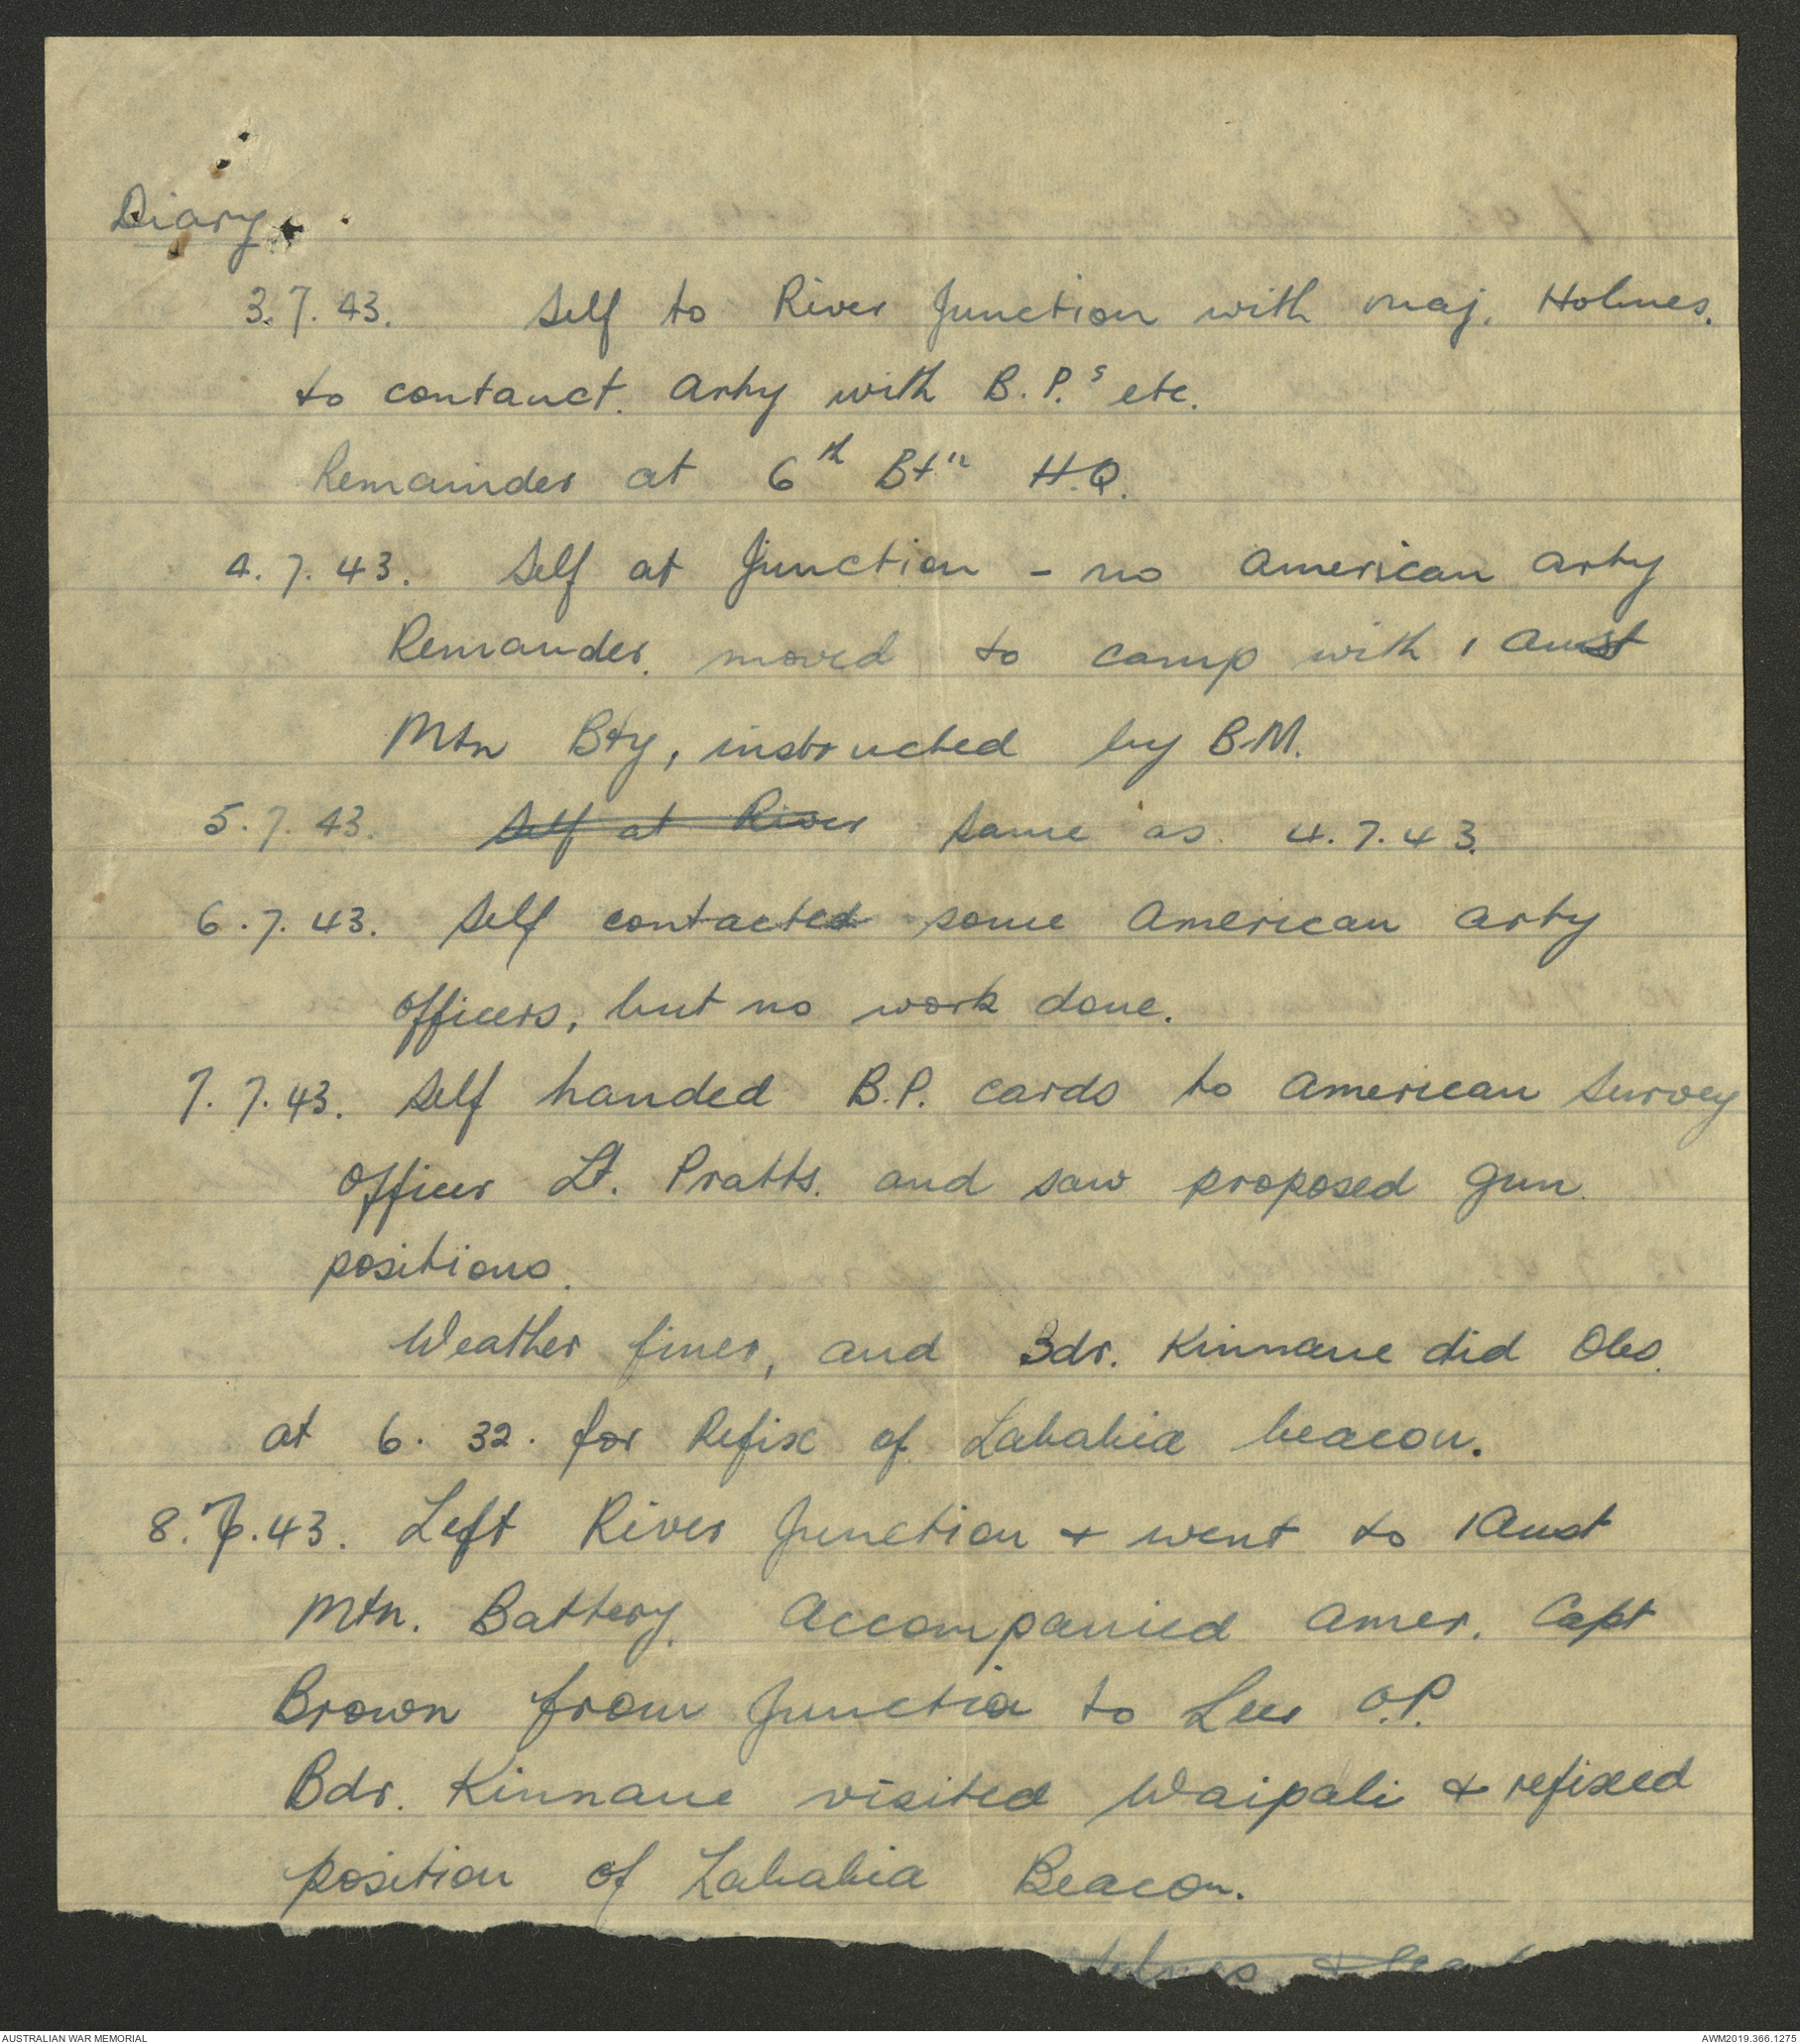 Diary.
3.7.43. Self to River Junction with Maj. Holmes.
to contanct. Arty with B.P.s etc.
Remainder at 6th Btn H.Q.
4.7.43. Self at Junction - no American Arty
Remander. moved to camp with 1 Aust
Mtn Bty, instructed by B.M.
5.7.43. Self at River Same as 4.7.43.
6.7.43. Self contacted some American Arty
Officers, but no work done.
7.7.43. Self handed B.P. cards to American Survey
Officer Lt. Pratts. and saw proposed gun
positions.
Weather finer, and Bdr. Kinnane did Obs.
at 6.32. for Refix of Lababia beacon.
8.7.43. Left River Junction & went to 1 Aust
Mtn. Battery. Accompanied Amer. Capt
Brown from Junction to Lees O.P.
Bdr. Kinnane visited Waipali & refixed
position of Lababia Beacon.
AUSTRALIAN WAR MEMORIAL
AWM2019.366.1275